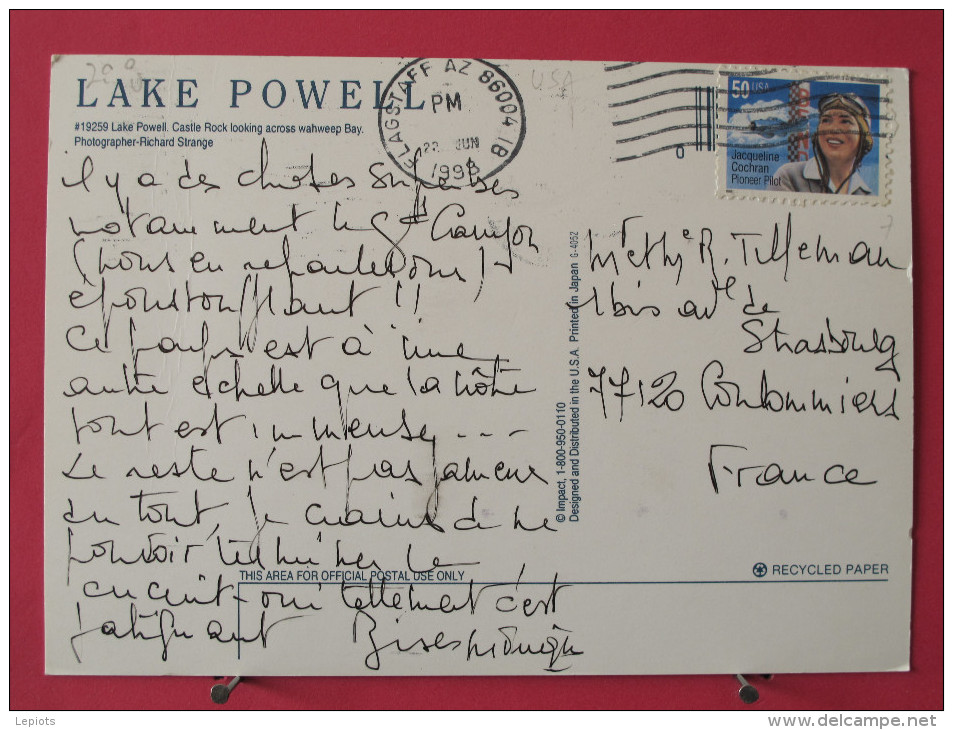 LAKE POWELL
#19259 Lake Powell. Castle Rock looking across wahweep Bay.
Photographer-Richard Strange
FLAGSTAFF AZ 86004
PM
22 JUN
1998
USA
50 USA
Jacqueline
Cochran
Pioneer Pilot
il y a des choses superbes
notamment le Gd Canyon
(nous en reparlerons)
époustouflant !!
Ce pays est à une
autre échelle que la nôtre
tout est immense ---
Le reste n'est pas fameux
du tout, je crains de ne
pouvoir terminer le
circuit tellement c'est
fatigant Bises
Mr et Me R. Tilleman
1 bis ave de
Strasbourg
77120 Coulommiers
France
© Impact, 1-800-950-0110
Designed and Distributed in the U.S.A. Printed in Japan G-4052
THIS AREA FOR OFFICIAL POSTAL USE ONLY
RECYCLED PAPER
Lepiots
www.delcampe.net